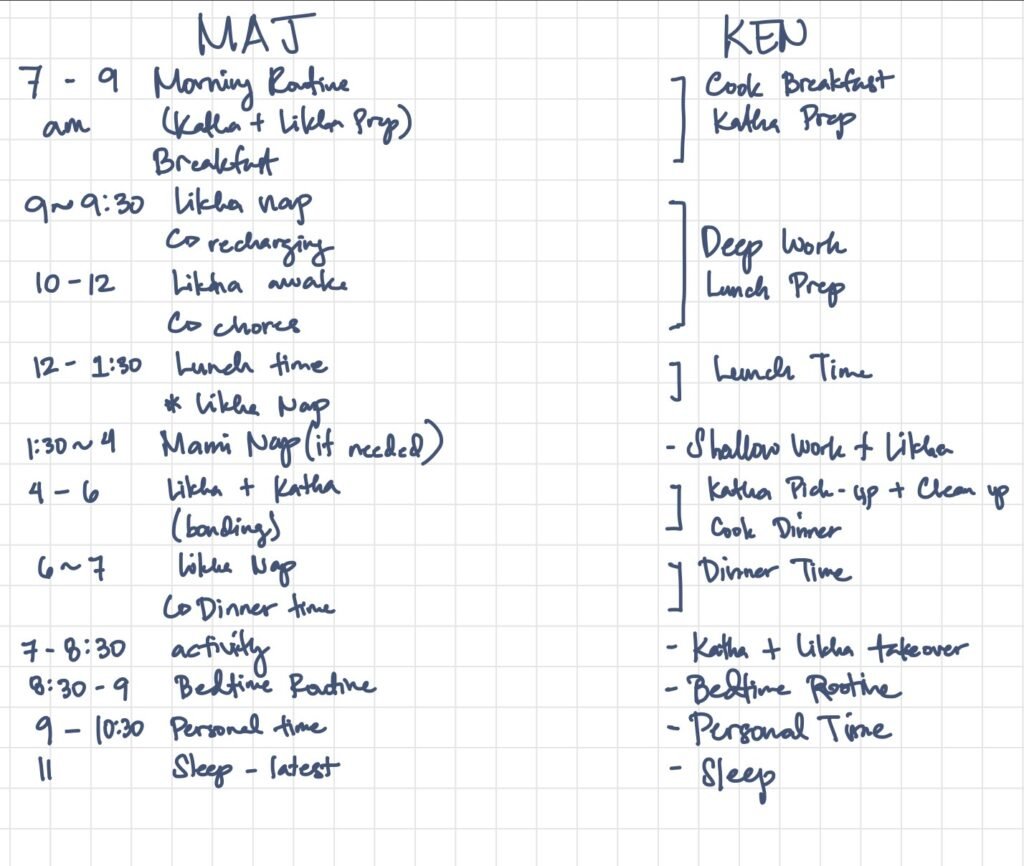 MAJ KEN
7 - 9 Morning Routine Cook Breakfast
am (Katha + Likha Prep) Katha Prep
Breakfast
9 ~ 9:30 Likha nap
↳ recharging Deep Work
10 - 12 Likha awake Lunch Prep
↳ chores
12 - 1:30 Lunch time Lunch Time
* Likha Nap
1:30 ~ 4 Mami Nap (if needed) - Shallow Work + Likha
4 - 6 Likha + Katha Katha Pick-up + Clean up
(bonding) Cook Dinner
6 ~ 7 Likha Nap Dinner Time
↳ Dinner time
7 - 8:30 activity - Katha + Likha takeover
8:30 - 9 Bedtime Routine - Bedtime Rootine
9 - 10:30 Personal time - Personal Time
11 Sleep - latest - Sleep